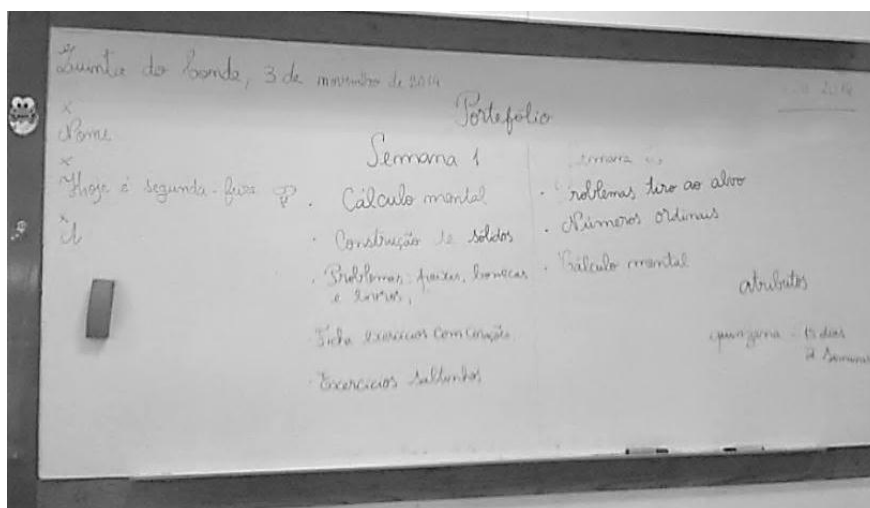 Quinta do Conde, 3 de novembro de 2014
2014
x
Portefólio
Nome
x
Semana 1
Hoje é segunda-feira
x
A
· Cálculo mental
· Construção de sólidos
· Problemas: peixes, bonecas
e livros;
· Ficha exercícios com
· Exercícios saltinhos
· Problemas tiro ao alvo
· Números ordinais
· Cálculo mental
atributos
quinzena - 15 dias
2 semanas